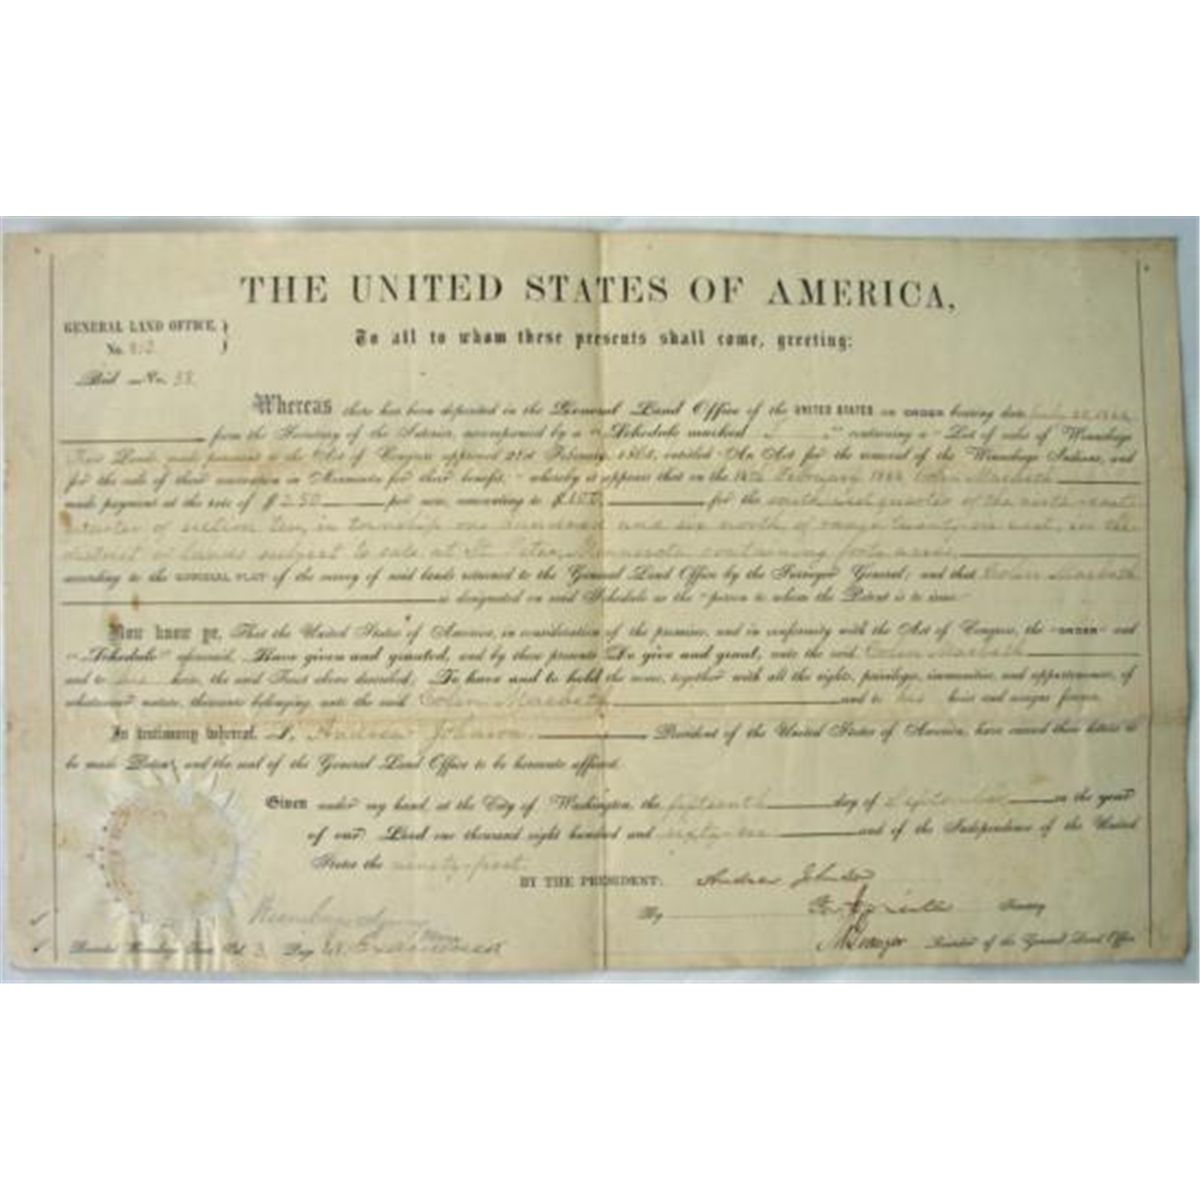 THE UNITED STATES OF AMERICA,
GENERAL LAND OFFICE,
No.
To all to whom these presents shall come, greeting:
Bid No. 38
Whereas there has been deposited in the General Land Office of the UNITED STATES an ORDER bearing date
from the Secretary of the Interior, accompanied by a "Schedule marked " containing a "List of sales of Winnebago
Trust Lands, made pursuant to the Act of Congress approved 21st February, 1863, entitled "An Act for the removal of the Winnebago Indians, and
for the sale of their reservation in Minnesota for their benefit;" whereby it appears that on the 14th February 1866 Colin Macbeth
made payment at the rate of $2.50 per acre, amounting to $100 for the south west quarter of the north east
quarter of section ten, in township one hundred and six north of range twenty six west, in the
district of lands subject to sale at St. Peter, Minnesota containing forty acres,
according to the OFFICIAL PLAT of the survey of said lands returned to the General Land Office by the Surveyor General; and that Colin Macbeth
is designated on said Schedule as the "person to whom the Patent is to issue"
Now know ye, That the United States of America, in consideration of the premises, and in conformity with the Act of Congress, the "ORDER" and
"Schedule" aforesaid, Have given and granted, and by these presents Do give and grant, unto the said Colin Macbeth
and to his heirs, the said Tract above described; To have and to hold the same, together with all the rights, privileges, immunities, and appurtenances, of
whatsoever nature, thereunto belonging, unto the said Colin Macbeth and to his heirs and assigns forever.
In testimony whereof, I, Andrew Johnson, President of the United States of America, have caused these letters to
be made Patent, and the seal of the General Land Office to be hereunto affixed.
Given under my hand, at the City of Washington, the fifteenth day of September in the year
of our Lord one thousand eight hundred and sixty-six and of the Independence of the United
States the ninety-first.
BY THE PRESIDENT: Andrew Johnson
By Secretary
Recorded Vol. 3 Page
Recorder of the General Land Office